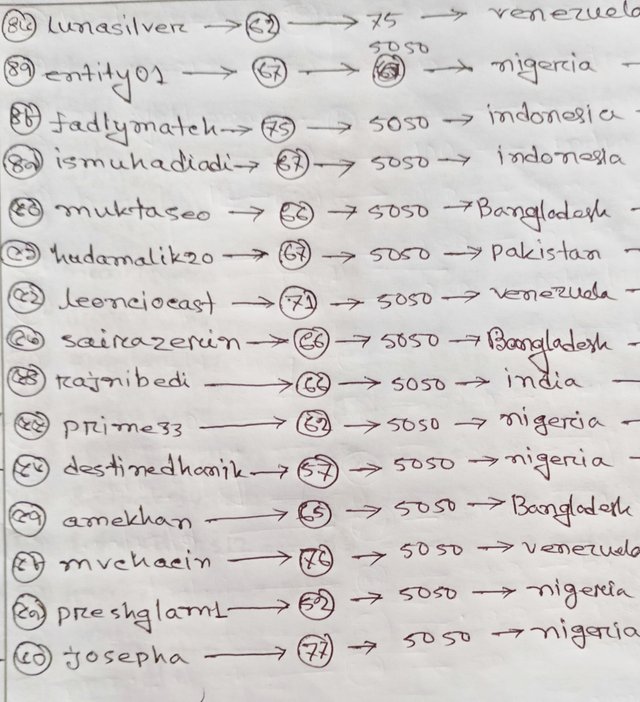 ৪৬ lunasilver → 62 → 75 → venezuela
5050
৪৭ entity01 → 67 → → nigeria -
৪৮ fadlymatch → 75 → 5050 → indonesia -
৪৯ ismuhadiadi → 67 → 5050 → indonesia
৫০ muktaseo → 66 → 5050 → Bangladesh -
৫১ hudamalik20 → 67 → 5050 → pakistan -
৫২ leonciocast → 71 → 5050 → venezuela -
৫৩ sairazerin → 66 → 5050 → Bangladesh -
৫৪ rajnibedi → 66 → 5050 → india -
৫৫ prime33 → 62 → 5050 → nigeria -
৫৬ destinedhanik → 57 → 5050 → nigeria -
৫৭ amekhan → 65 → 5050 → Bangladesh
৫৮ mvchacin → 76 → 5050 → venezuela
৫৯ preshglam1 → → 5050 → nigeria
৬০ josepha → 77 → 5050 → nigeria